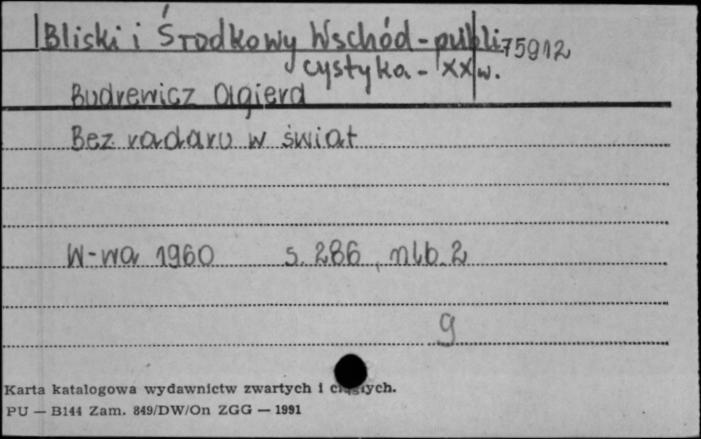 Bliski i Środkowy Wschód - publi 75912
cystyka - XX w.
Budrewicz Olgierd
Bez radaru w świat
W-wa 1960 s. 286, nlb. 2
g
Karta katalogowa wydawnictw zwartych i ciągłych.
PU — B144 Zam. 849/DW/On ZGG — 1991